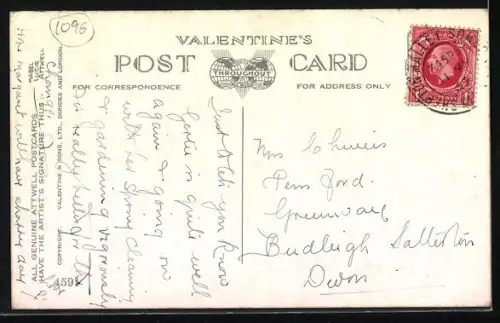 1096
VALENTINE'S
POST CARD
THROUGHOUT
FOR CORRESPONDENCE
FOR ADDRESS ONLY
Just to let you know
Gertie is quite well
again & going on
with her Spring Cleaning
& gardening vigorously
is really better for
Mrs
Pens ford.
Greenway
Budleigh Salterton
Devon
ALL GENUINE ATTWELL POSTCARDS
HAVE THE ARTIST'S SIGNATURE THUS:—
MABEL
LUCIE
ATTWELL
COPYRIGHT. VALENTINE & SONS, LTD., DUNDEE AND LONDON.
4591
Margaret will